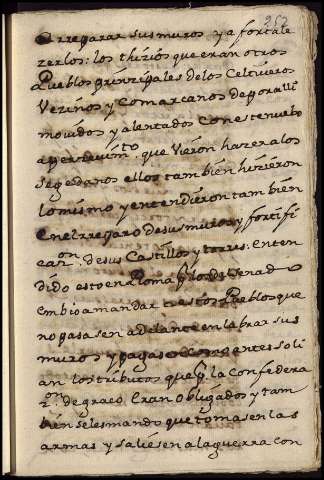 252
Arreparar sus muros y a fortale
zerlos: los thizios que eran otros
Pueblos prinzipales de los Celtiveros
Vezinos y Comarcanos de por alli
movidos y alentados con este nuebo
aperzevim.to que vieron hazer a los
Segedanos ellos tambien hizieron
lo mismo y entendieron tambien
en el rreparo de sus muros y fortifi
caz.on de sus Castillos y torres: enten
dido esto en Roma por los del Senado
Embio a mandar a estos Pueblos que
no pasasen adelante en labrar sus
muros y pagasen
an los tributos que por la Confedera
z.on de graco Eran Obligados y tam
bien se les mando que tomasen las
armas y saliesen a la guerra con